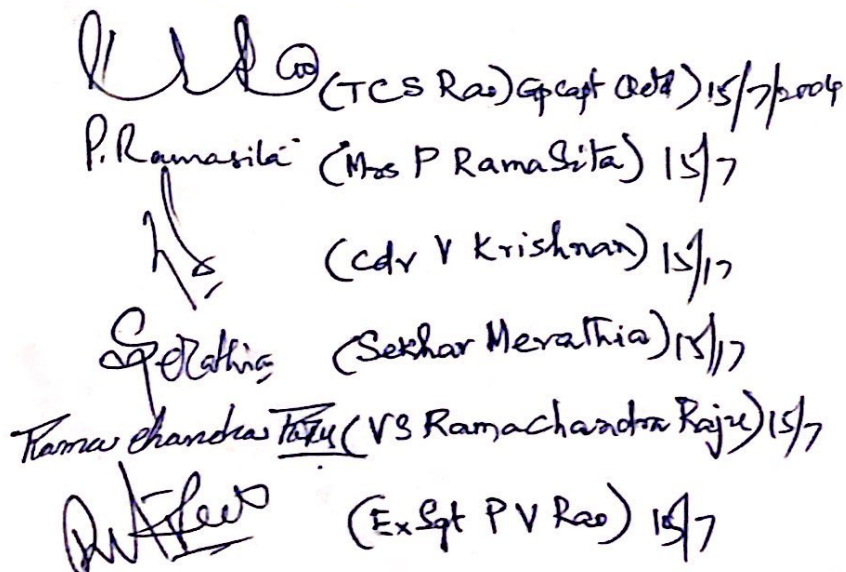 (TCS Rao) Gp Capt (Retd) 15/7/2004
P. Ramasita (Mrs P RamaSita) 15/7
(Cdr V Krishnan) 15/7
(Sekhar Merathia) 15/7
Rama chandra Raju (VS Ramachandra Raju) 15/7
(Ex Sgt P V Rao) 15/7